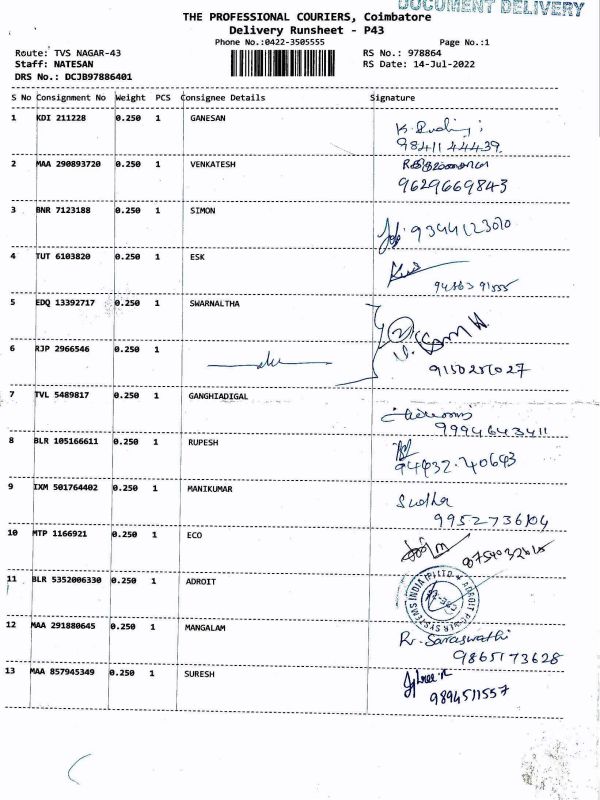 DOCUMENT DELIVERY
THE PROFESSIONAL COURIERS, Coimbatore
Delivery Runsheet - P43
Phone No.:0422-3505555 Page No.:1
Route: TVS NAGAR-43 RS No.: 978864
Staff: NATESAN RS Date: 14-Jul-2022
DRS No.: DCJB97886401
S No Consignment No Weight PCS Consignee Details Signature
1 KDI 211228 0.250 1 GANESAN
98411 44439
2 MAA 290893720 0.250 1 VENKATESH
9629669843
3 BNR 7123188 0.250 1 SIMON
4 TUT 6103820 0.250 1 ESK
5 EDQ 13392717 0.250 1 SWARNALTHA
6 RJP 2966546 0.250 1
7 TVL 5489817 0.250 1 GANGHIADIGAL
9994643411
8 BLR 105166611 0.250 1 RUPESH
9 IXM 501764402 0.250 1 MANIKUMAR
Sudha
9952736104
10 MTP 1166921 0.250 1 ECO
11 BLR 5352006330 0.250 1 ADROIT
ADROIT POWER SYSTEMS INDIA (P) LTD
12 MAA 291880645 0.250 1 MANGALAM
R. Saraswathi
9865173628
13 MAA 857945349 0.250 1 SURESH
9894511557